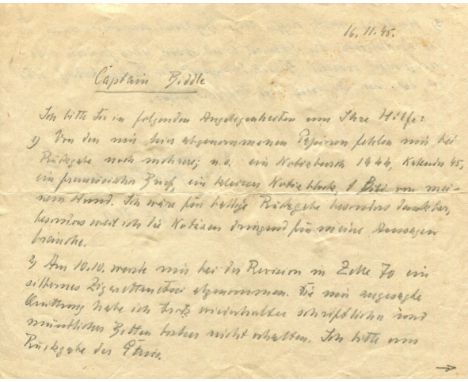 16.11.45.
Captain Biddle
Ich bitte Sie in folgenden Angelegenheiten um Ihre Hilfe:
1) Von den mir hier abgenommenen Papieren fehlen mir bei
Rückgabe noch mehrere, u.a. ein Notizbuch 1944, Kalender 45,
ein französischer Brief, ein kleiner Notizblock, 1 Bild von mei-
nem Hund. Ich wäre für baldige Rückgabe besonders dankbar,
besonders weil ich die Notizen dringend für meine Aussagen
brauche.
2) Am 10.10. wurde mir bei der Revision in Zelle 70 ein
silbernes Zigarettenetui abgenommen. Die mir zugesagte
Quittung habe ich trotz wiederholter schriftlicher und
mündlicher Bitten bisher nicht erhalten. Ich bitte um
Rückgabe des Etuis.
→